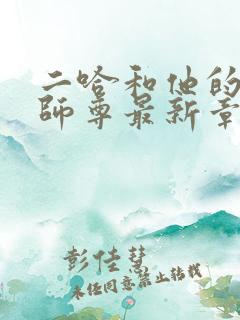 二哈和他的
師尊最新章
彭佳慧
未经同意禁止转载